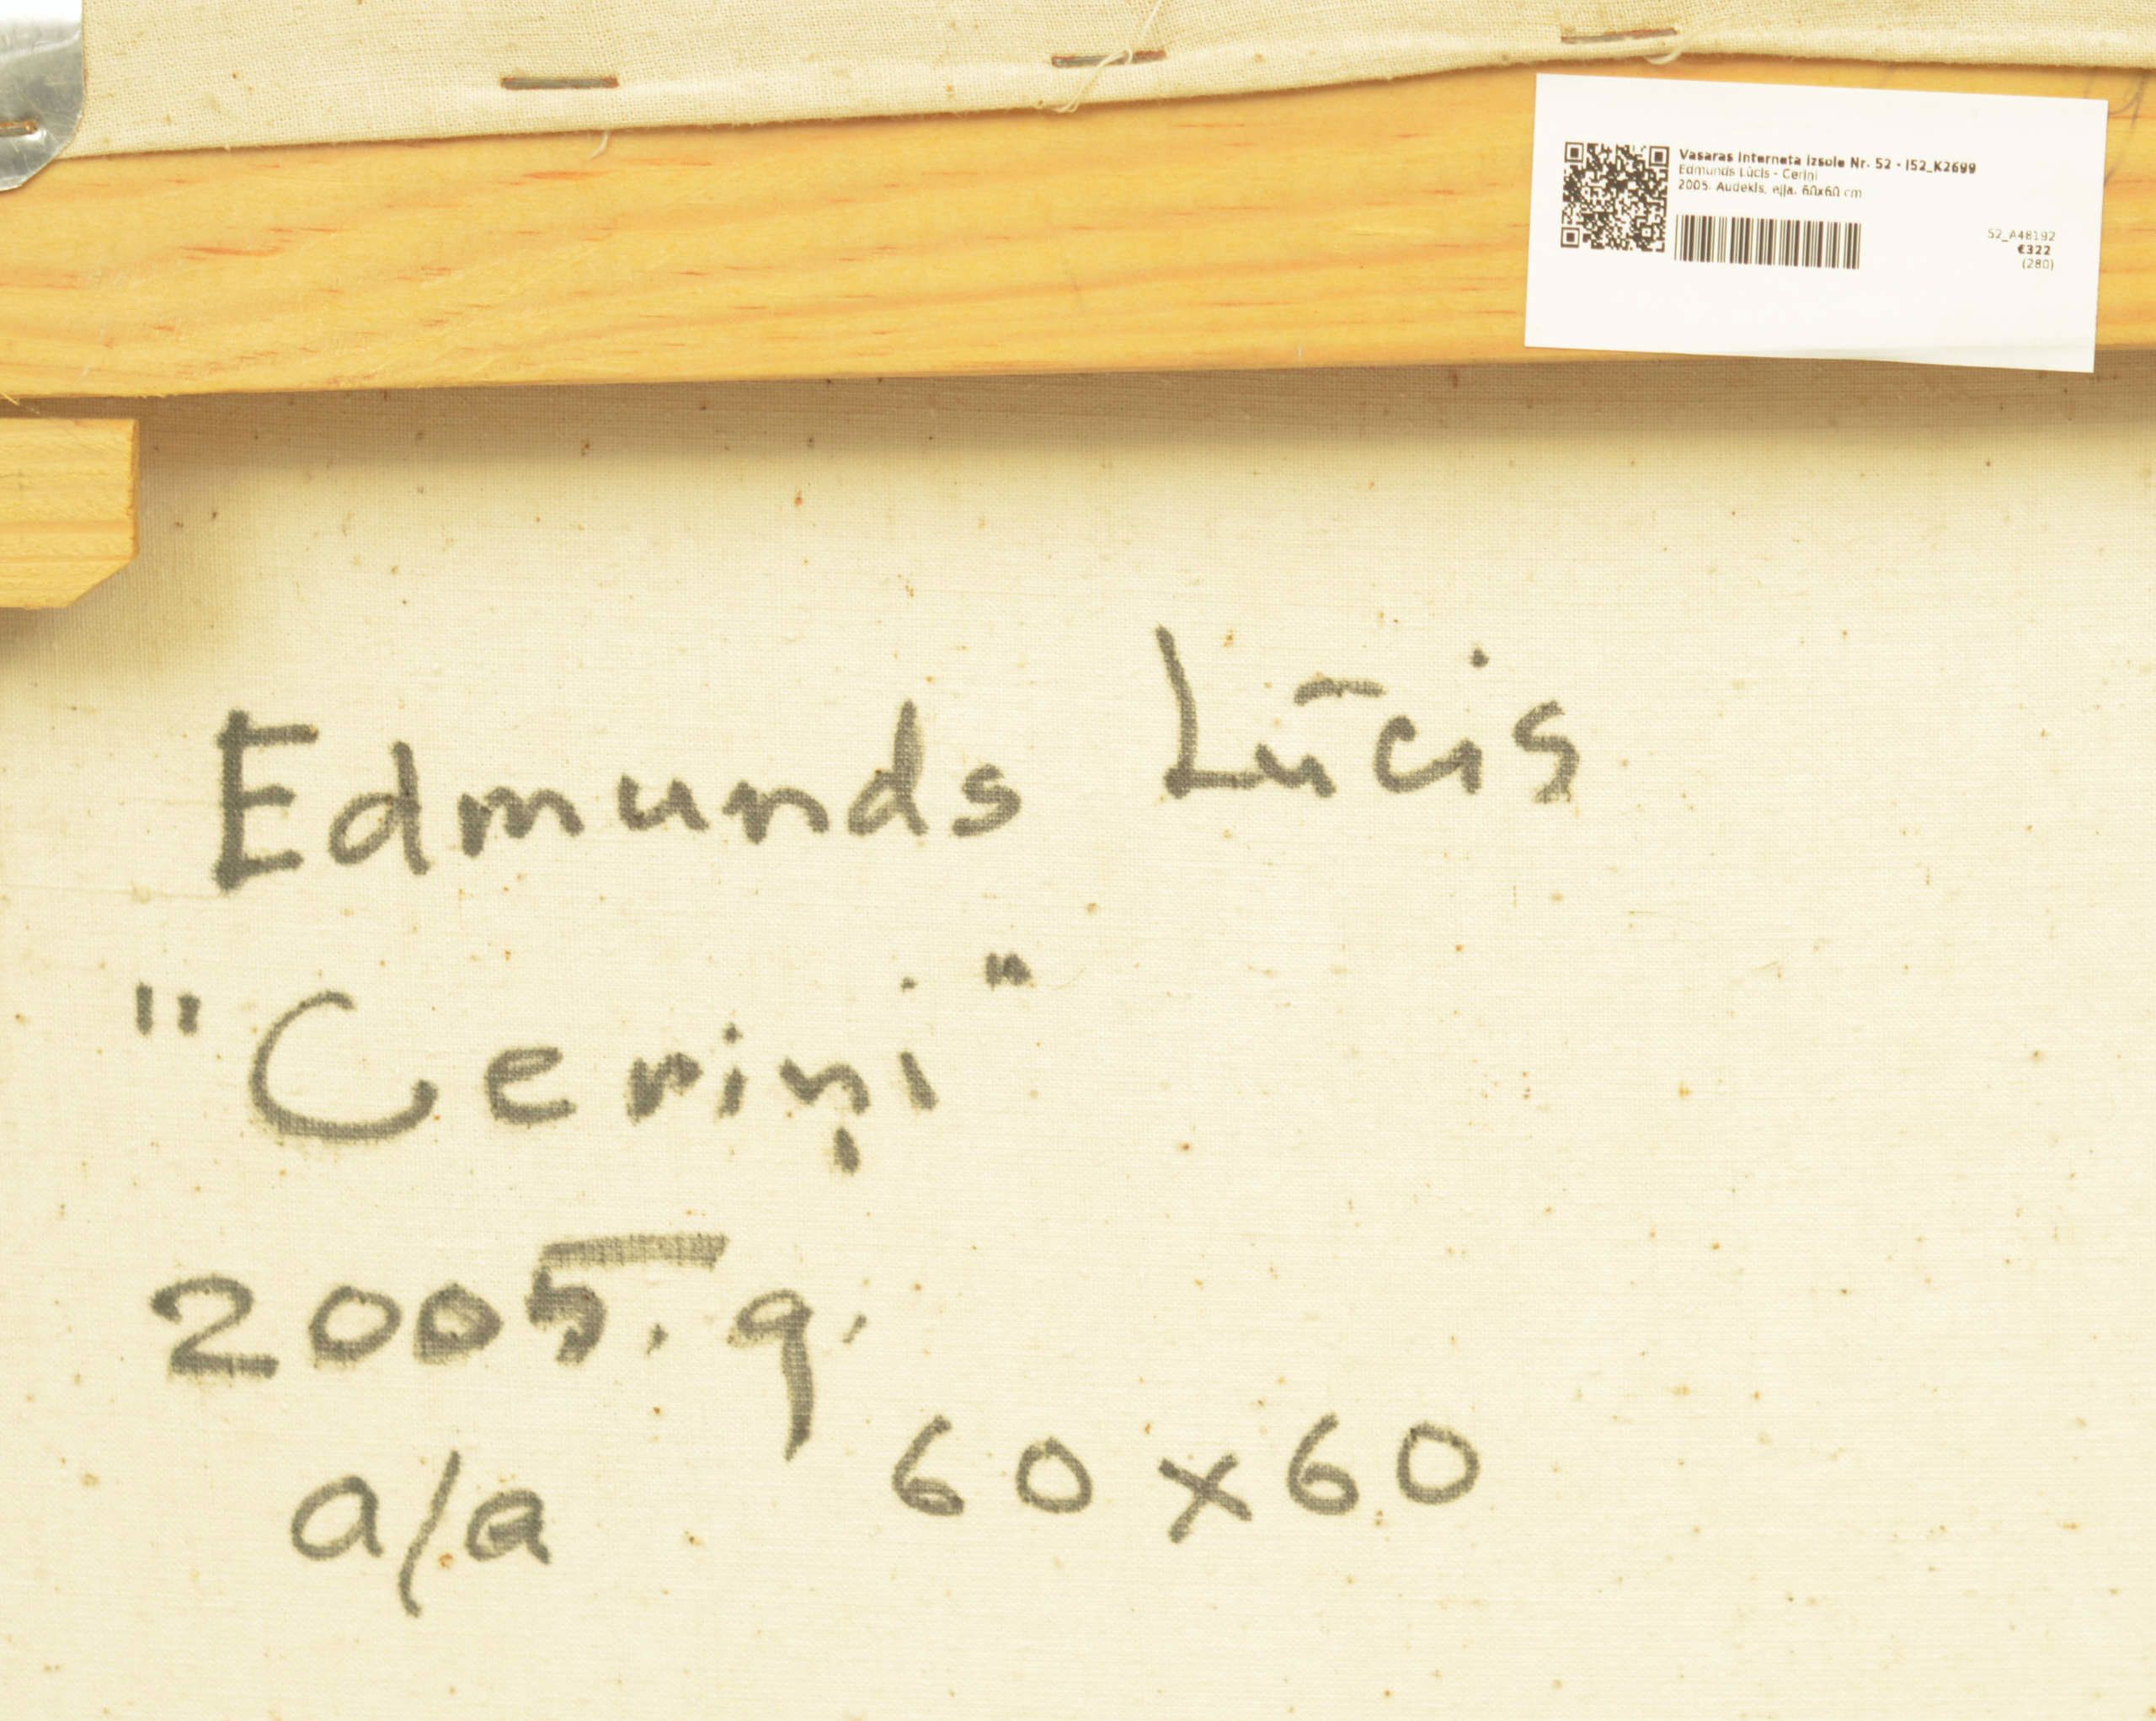 Vasaras interneta izsole Nr. 52 - I52_K2699
Edmunds Lūcis - Ceriņi
2005. Audekls, eļļa. 60x60 cm
52_A48192
€322
(280)
Edmunds Lūcis
"Ceriņi"
2005. g.
a/a 60 x 60